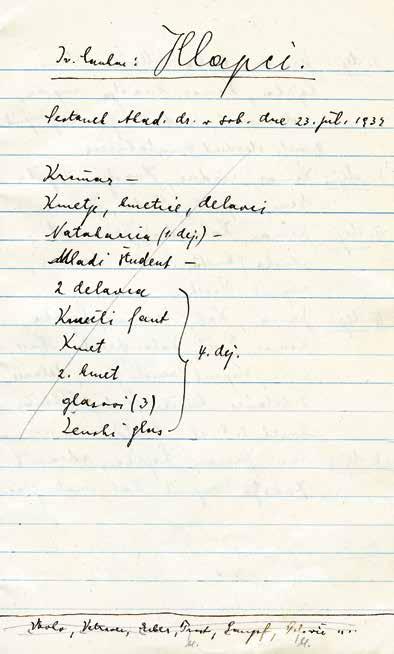 Iv. Cankar: Hlapci.
Sestanek Akad. dr. v sob. dne 23. jul. 1939
Krčmar –
Kmetje, kmetice, delavci
Natakarica (1. dej.) –
Mladi študent –
2 delavca
Kmečki fant
Kmet
2. kmet
glasovi (3)
Ženski glas
4. dej.